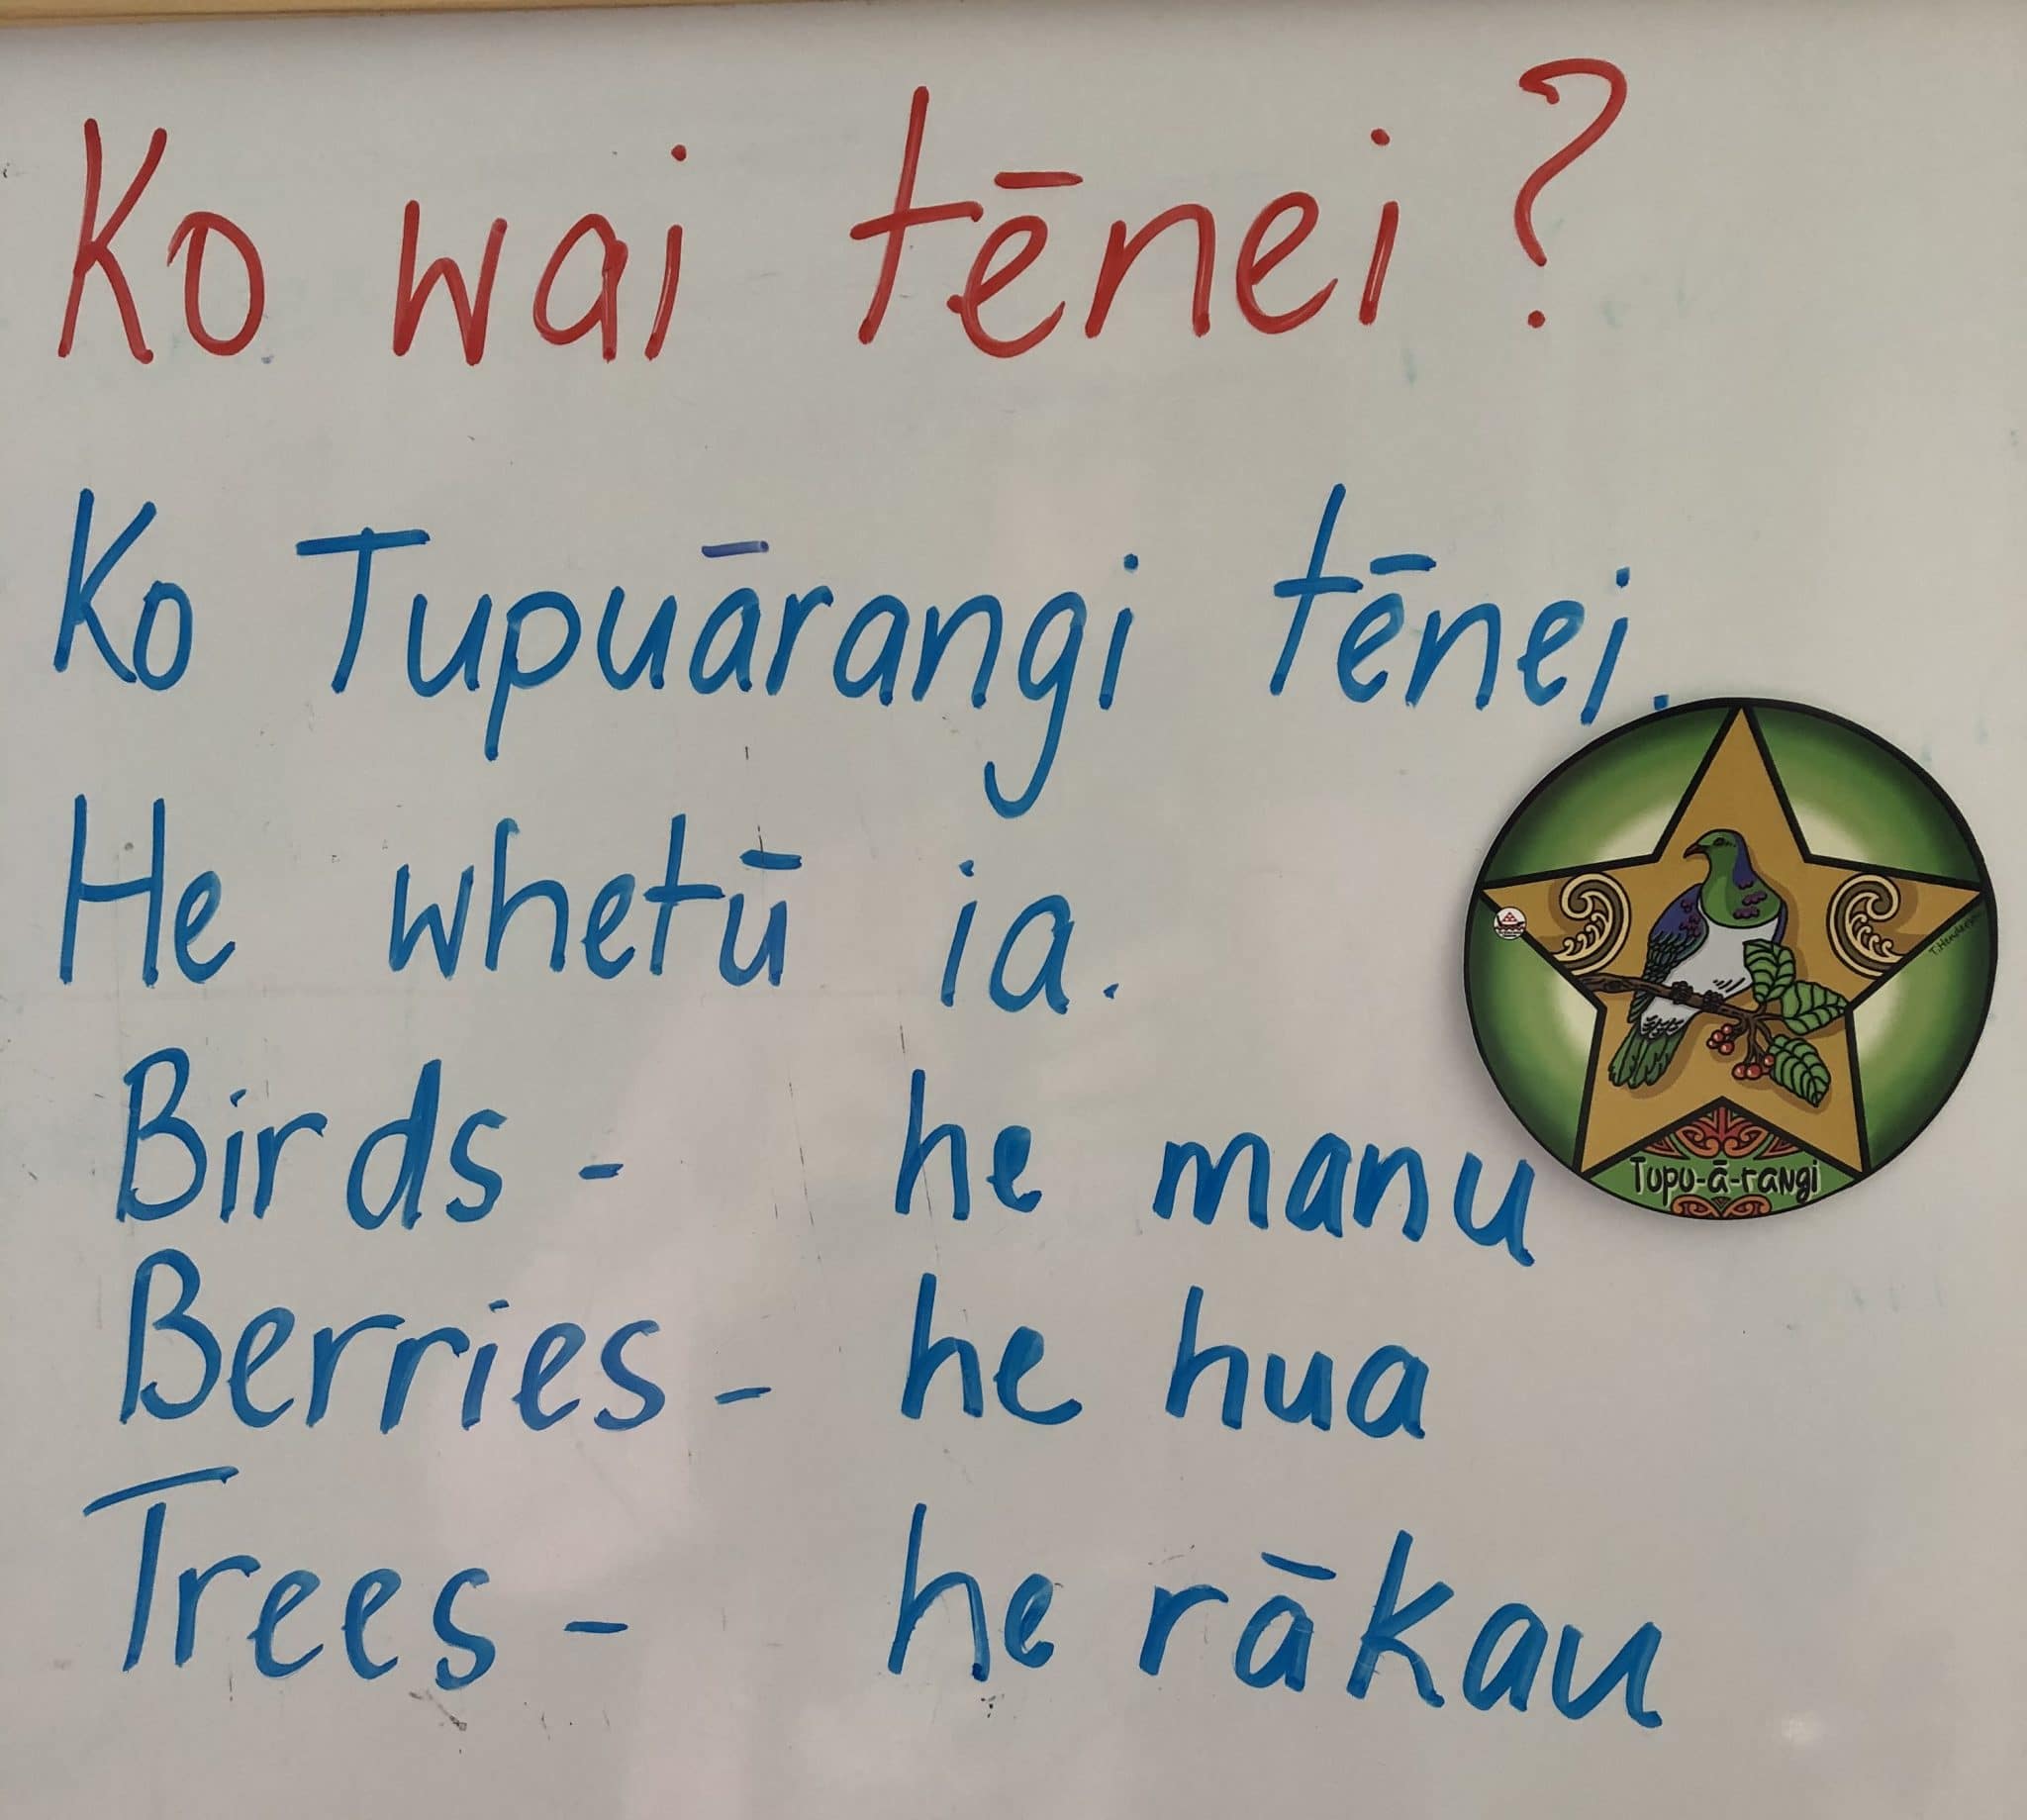 Ko wai tēnei?
Ko Tupuārangi tēnei.
He whetū ia.
Birds - he manu
Tupu-ā-rangi
Berries - he hua
Trees - he rākau